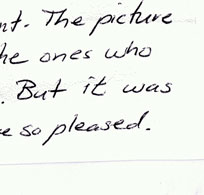 nt. The picture
he ones who
. But it was
e so pleased.